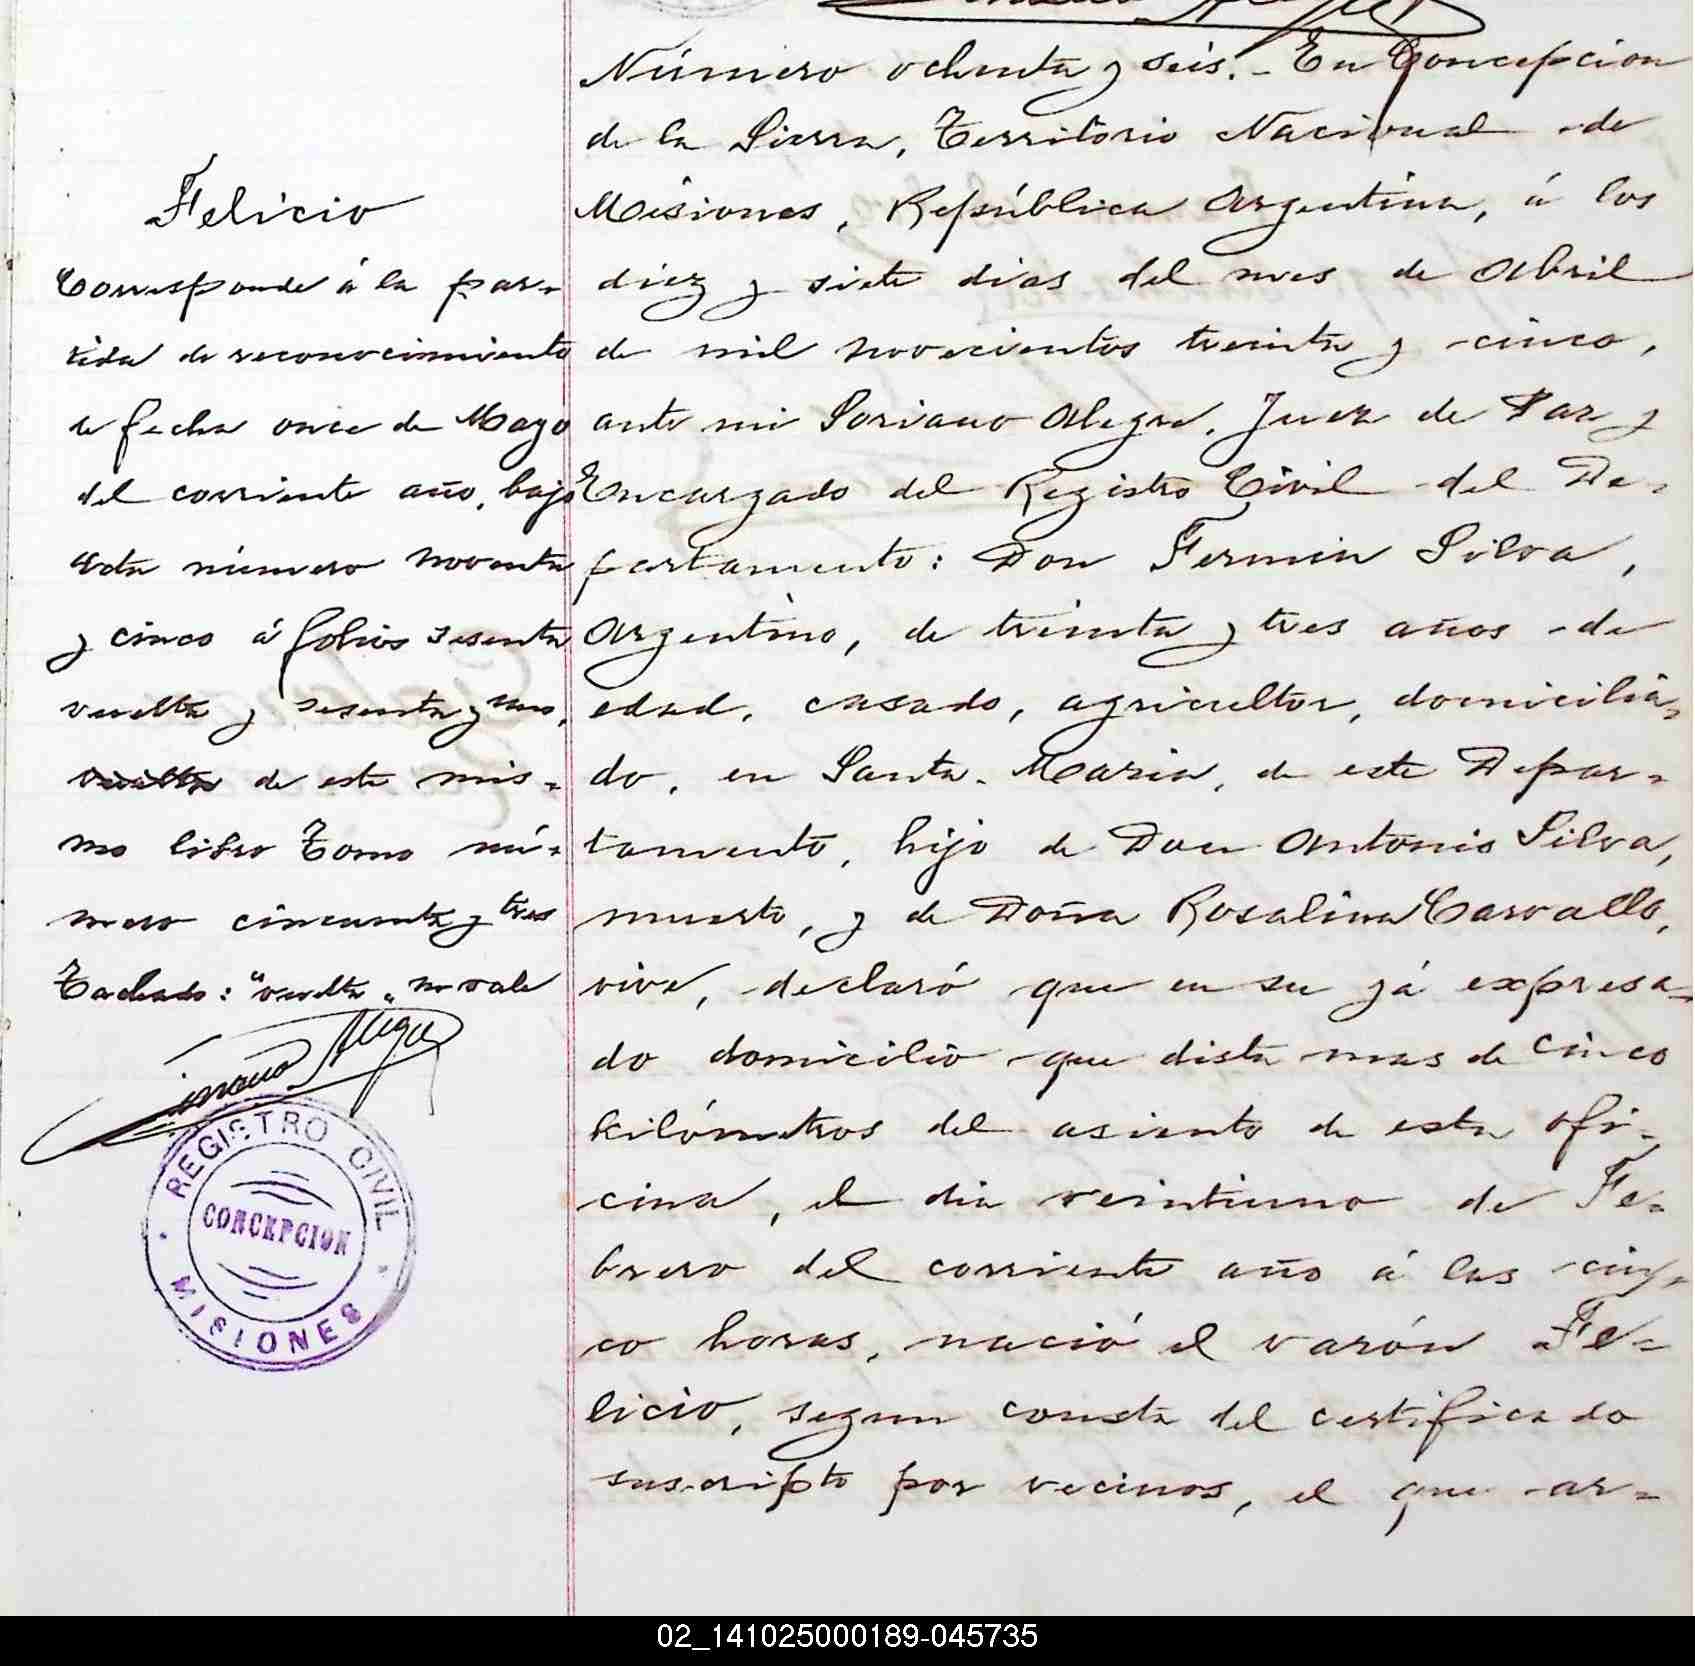 Felicio
Corresponde á la par-
tida de reconocimiento
de fecha once de Mayo
del corriente año, bajo
acta número noventa
y cinco á folios sesenta
vuelta y sesenta y uno,
vuelta de este mis-
mo libro Tomo nú-
mero cincuenta y tres
Tachado: "vuelta" no vale
Soriano Alegre
REGISTRO CIVIL
CONCEPCION
MISIONES
Número ochenta y seis.- En Concepcion
de la Sierra, Territorio Nacional de
Misiones, República Argentina, á los
diez y siete dias del mes de Abril
de mil novecientos treinta y cinco,
ante mi Soriano Alegre, Juez de Paz y
Encargado del Registro Civil del De-
partamento: Don Fermin Silva,
Argentino, de treinta y tres años de
edad, casado, agricultor, domicilia-
do, en Santa Maria, de este Depar-
tamento, hijo de Don Antonio Silva,
muerto, y de Doña Rosalina Carvallo,
vive, declaró que en su yá expresa-
do domicilio que dista mas de cinco
kilómetros del asiento de esta ofi-
cina, el dia veintiuno de Fe-
brero del corriente año á las cin-
co horas, nació el varón Fe-
licio, segun consta del certificado
suscripto por vecinos, el que ar-
02_141025000189-045735